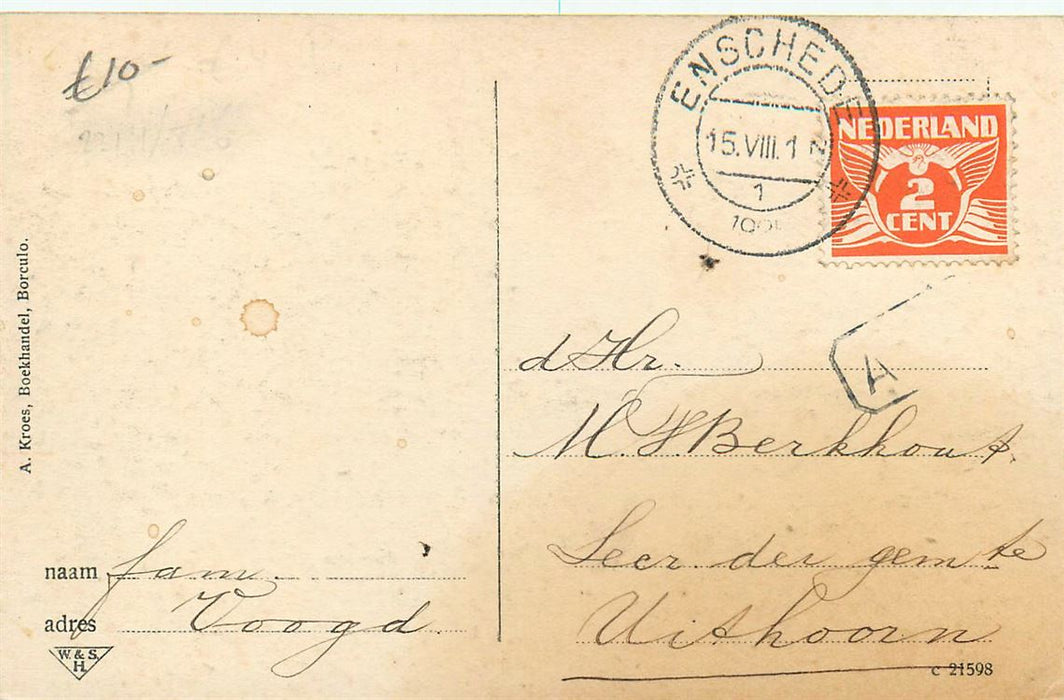 £10-
ENSCHEDE
15.VIII.1
1
NEDERLAND
2
CENT
A
A. Kroes, Boekhandel, Borculo.
d Hr.
M. Berkhout
der gem te
Uithoorn
naam fam.
adres Voogd
W. & S.
H.
c 21598